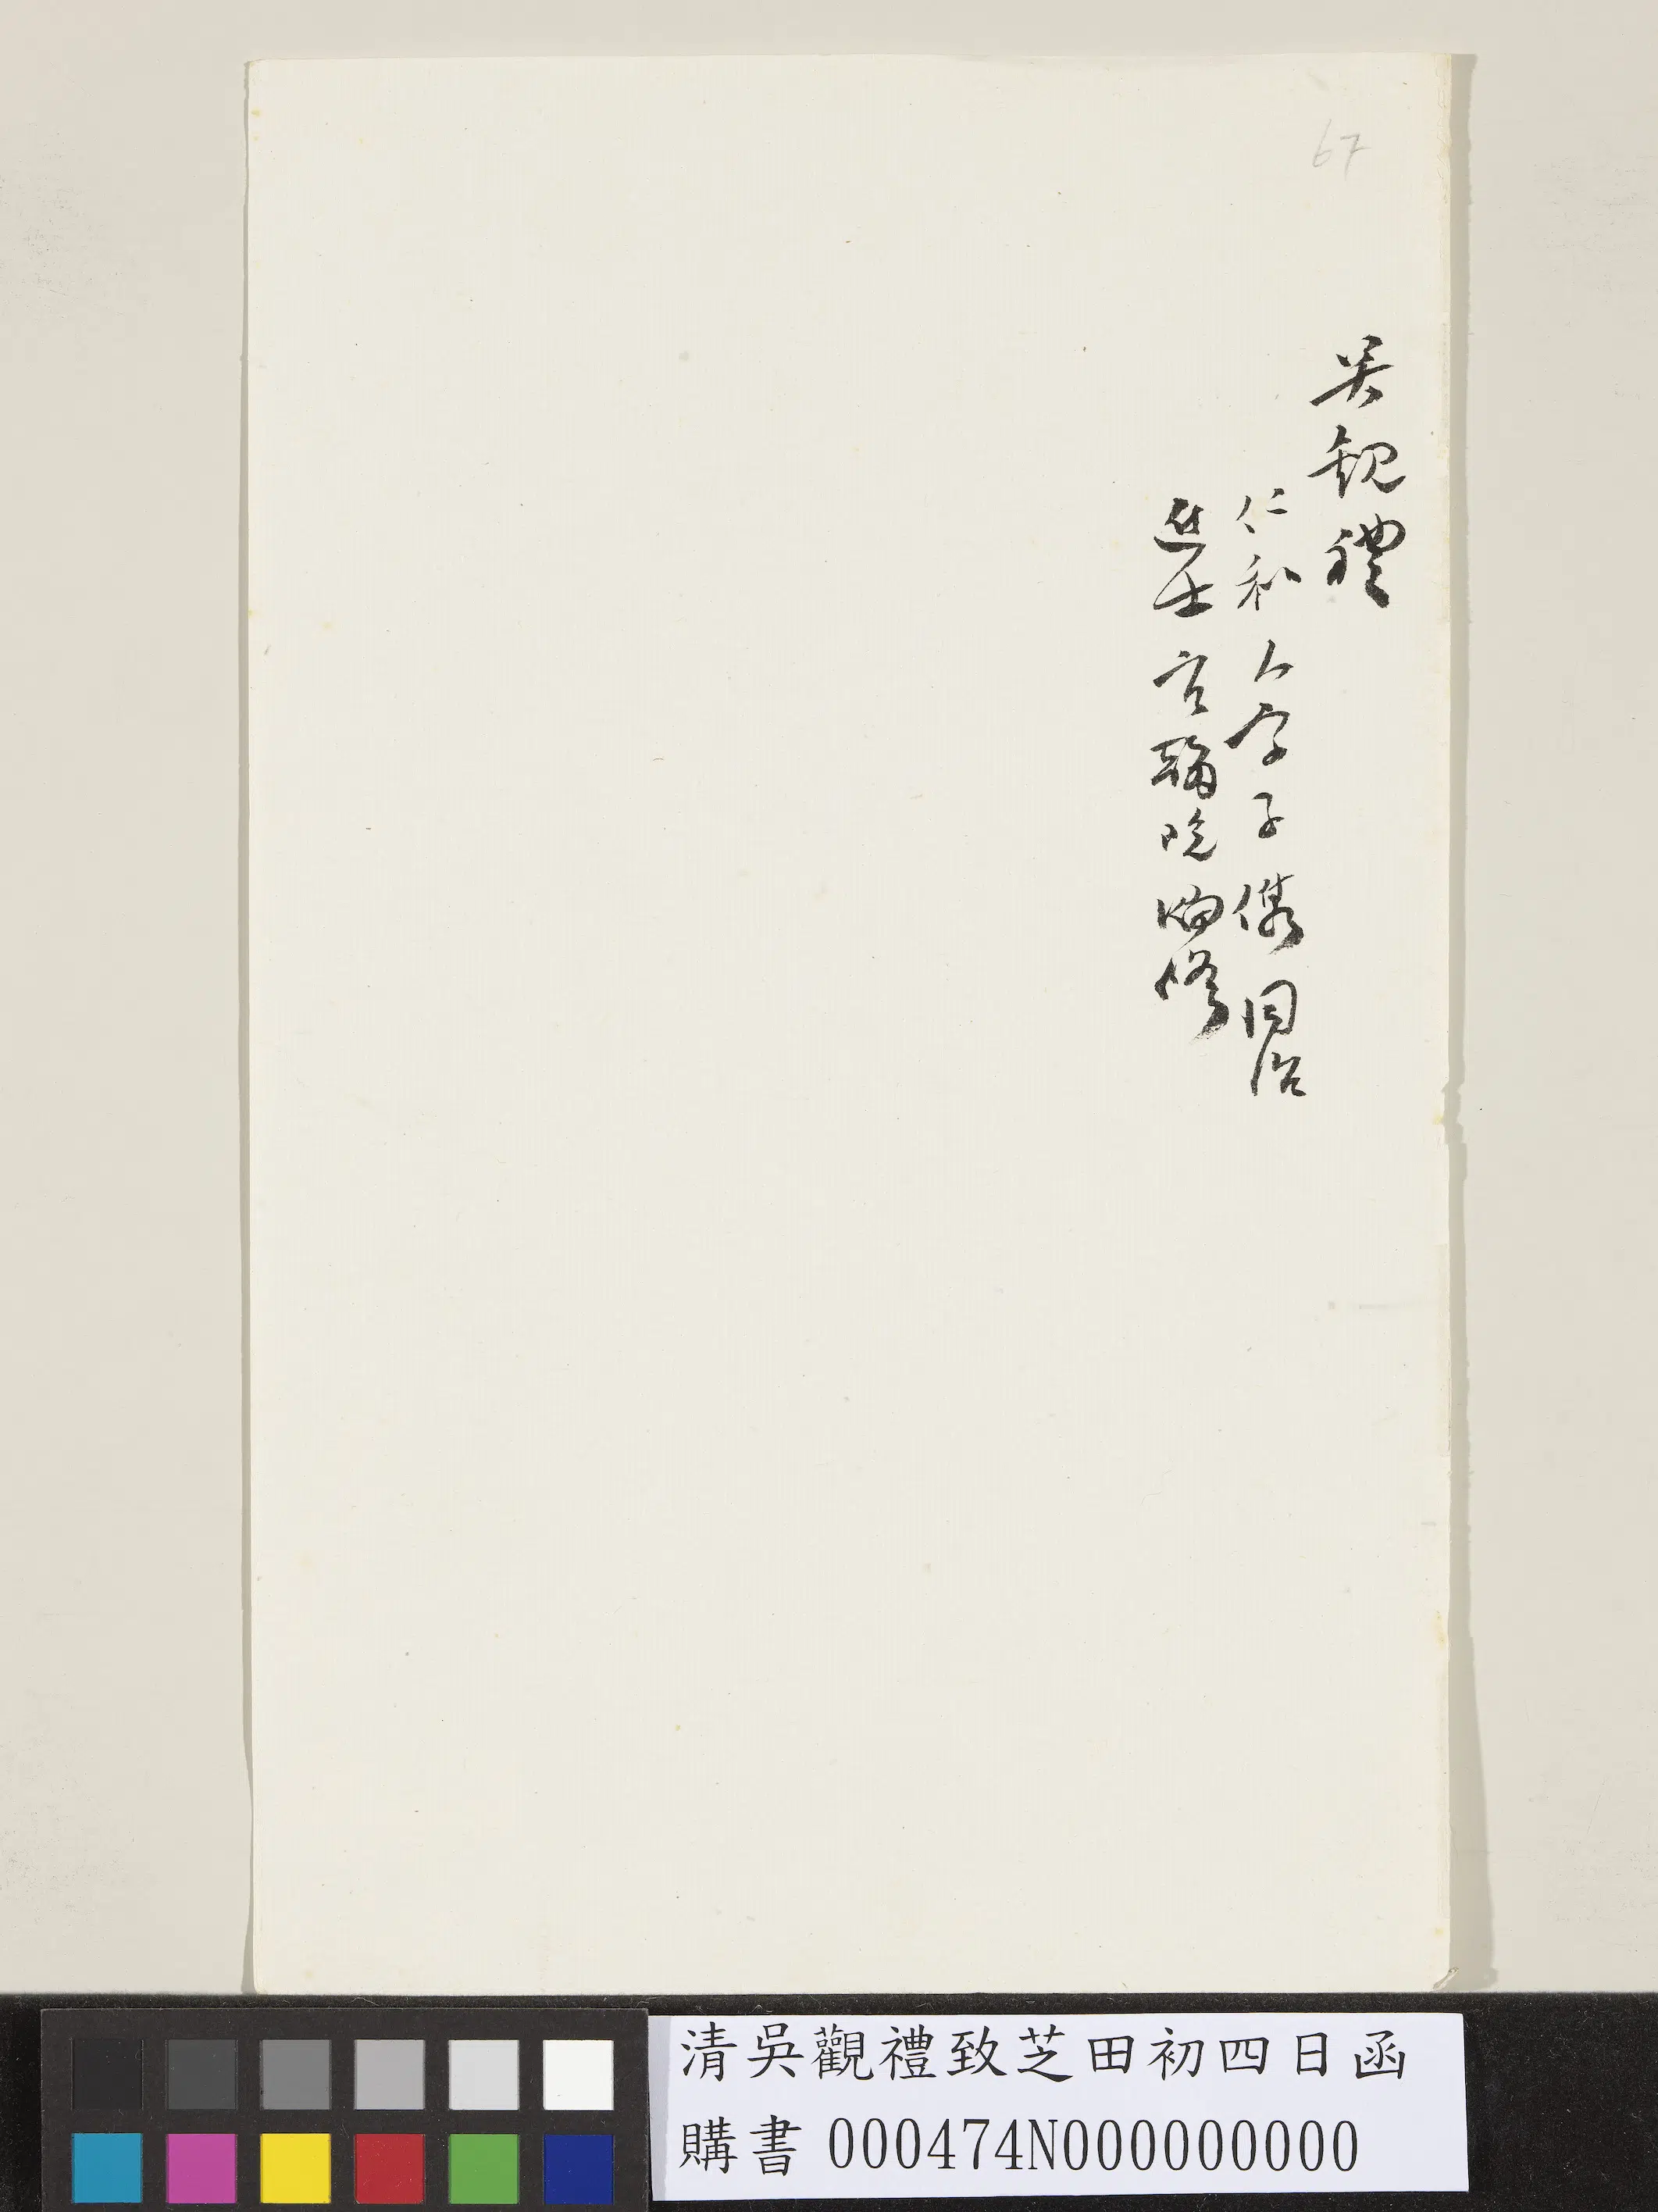 67
吴觀禮
仁和人字子儁同治
進士官翰院編修
清吳觀禮致芝田初四日函
購書 000474N000000000